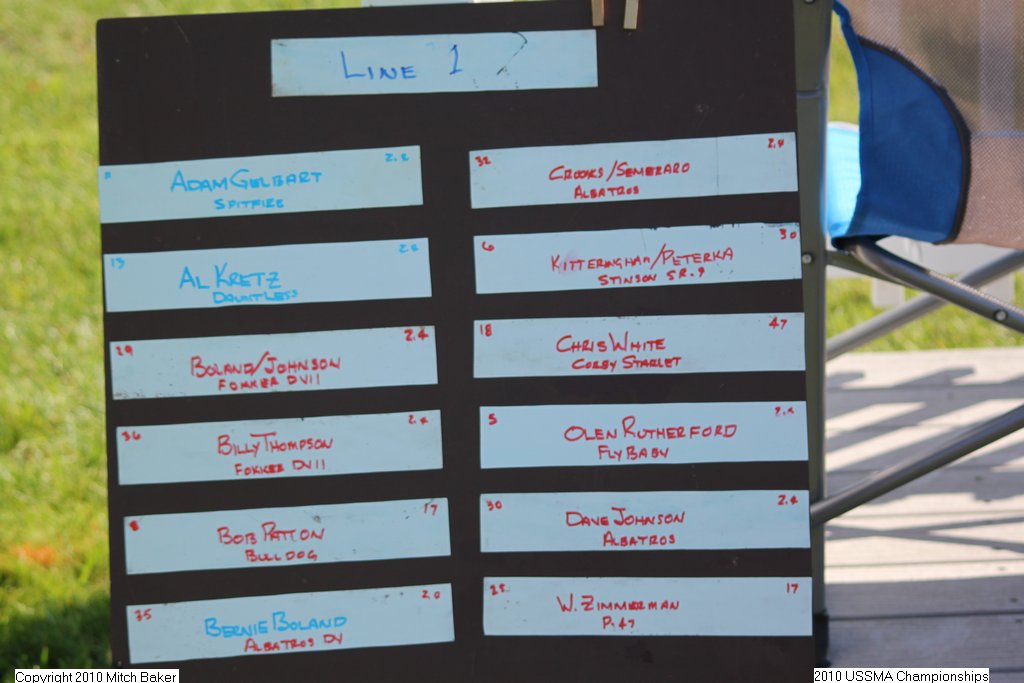 LINE 1
11 2.2
ADAM GELBART
SPITFIRE
13 2.2
AL KRETZ
DAUNTLESS
29 2.4
BOLAND/JOHNSON
FOKKER DVII
36 2.4
BILLY THOMPSON
FOKKER DVII
8 17
BOB PATTON
BULLDOG
35 2.0
BERNIE BOLAND
ALBATROS DV
32 2.4
CROOKS/SEMERARO
ALBATROS
6 30
KITTERINGHAM/PETERKA
STINSON SR.9
18 47
CHRIS WHITE
CORBY STARLET
5 2.4
OLEN RUTHERFORD
FLY BABY
30 2.4
DAVE JOHNSON
ALBATROS
25 17
W. ZIMMERMAN
P.47
Copyright 2010 Mitch Baker
2010 USSMA Championships